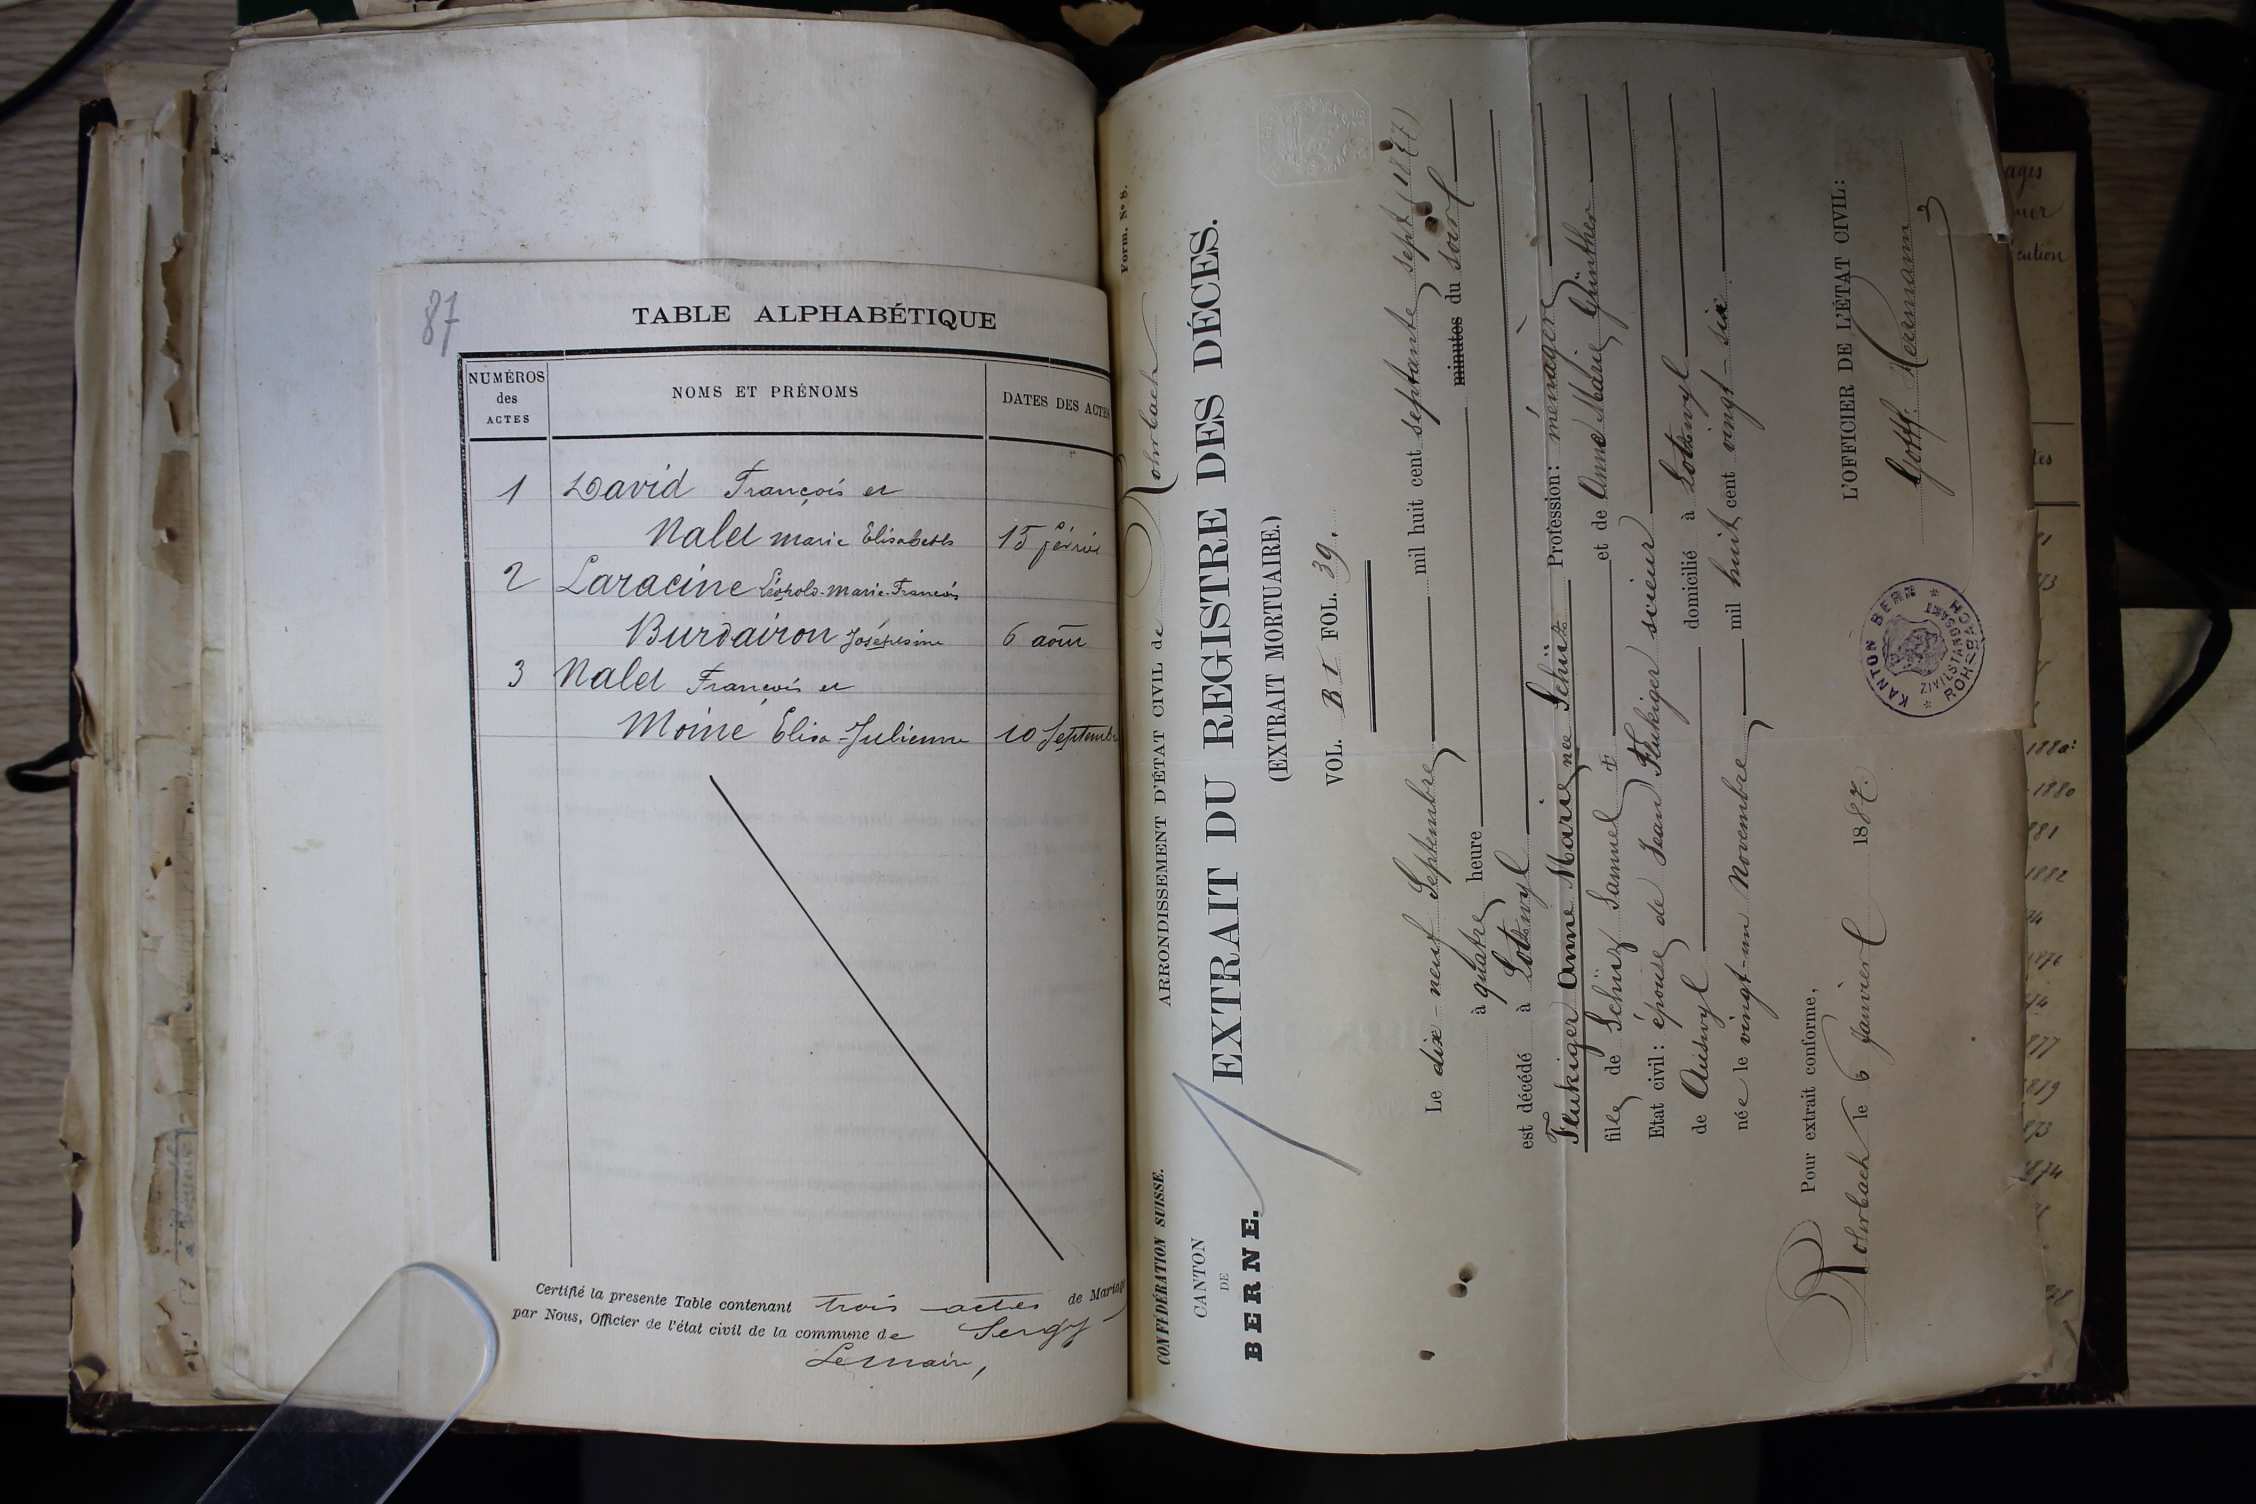 87
TABLE ALPHABÉTIQUE
NUMÉROS
des
ACTES
NOMS ET PRÉNOMS
DATES DES ACTES
1 David François et
Nalet marie Elisabeth 15 février
2 Laracine Léopold-Marie-François
Burdairon Joséphine 6 août
3 Nalet François et
Moine Elisa-Julienne 10 Septembre
Certifié la presente Table contenant trois actes de Mariage
par Nous, Officier de l'état civil de la commune de Sergy
Le maire,
Form. Nº 8.
CONFÉDÉRATION SUISSE.
ARRONDISSEMENT D'ÉTAT CIVIL de Rohrbach
CANTON
DE
BERNE.
EXTRAIT DU REGISTRE DES DÉCES.
(EXTRAIT MORTUAIRE.)
VOL. B I FOL. 39.
Le dix-neuf Septembre mil huit cent septante sept (1877)
à quatre heure minutes du soir
est décédé à Lotzwyl
Flukiger Anne Marie née Schüz Profession: ménagère
fille de Schüz Samuel ‡ et de Anne Marie Günther
Etat civil: épouse de Jean Flukiger scieur
de Auswyl domicilié à Lotzwyl
née le vingt-un Novembre mil huit cent vingt-six
Pour extrait conforme,
Rohrbach le 6 Janvier 1887.
L'OFFICIER DE L'ÉTAT CIVIL:
Gottf. Hermann
KANTON BERN
ZIVILSTANDSAMT
ROHRBACH
ages
cution
tes
1880
881
1882
1876
877
1819
873
1874